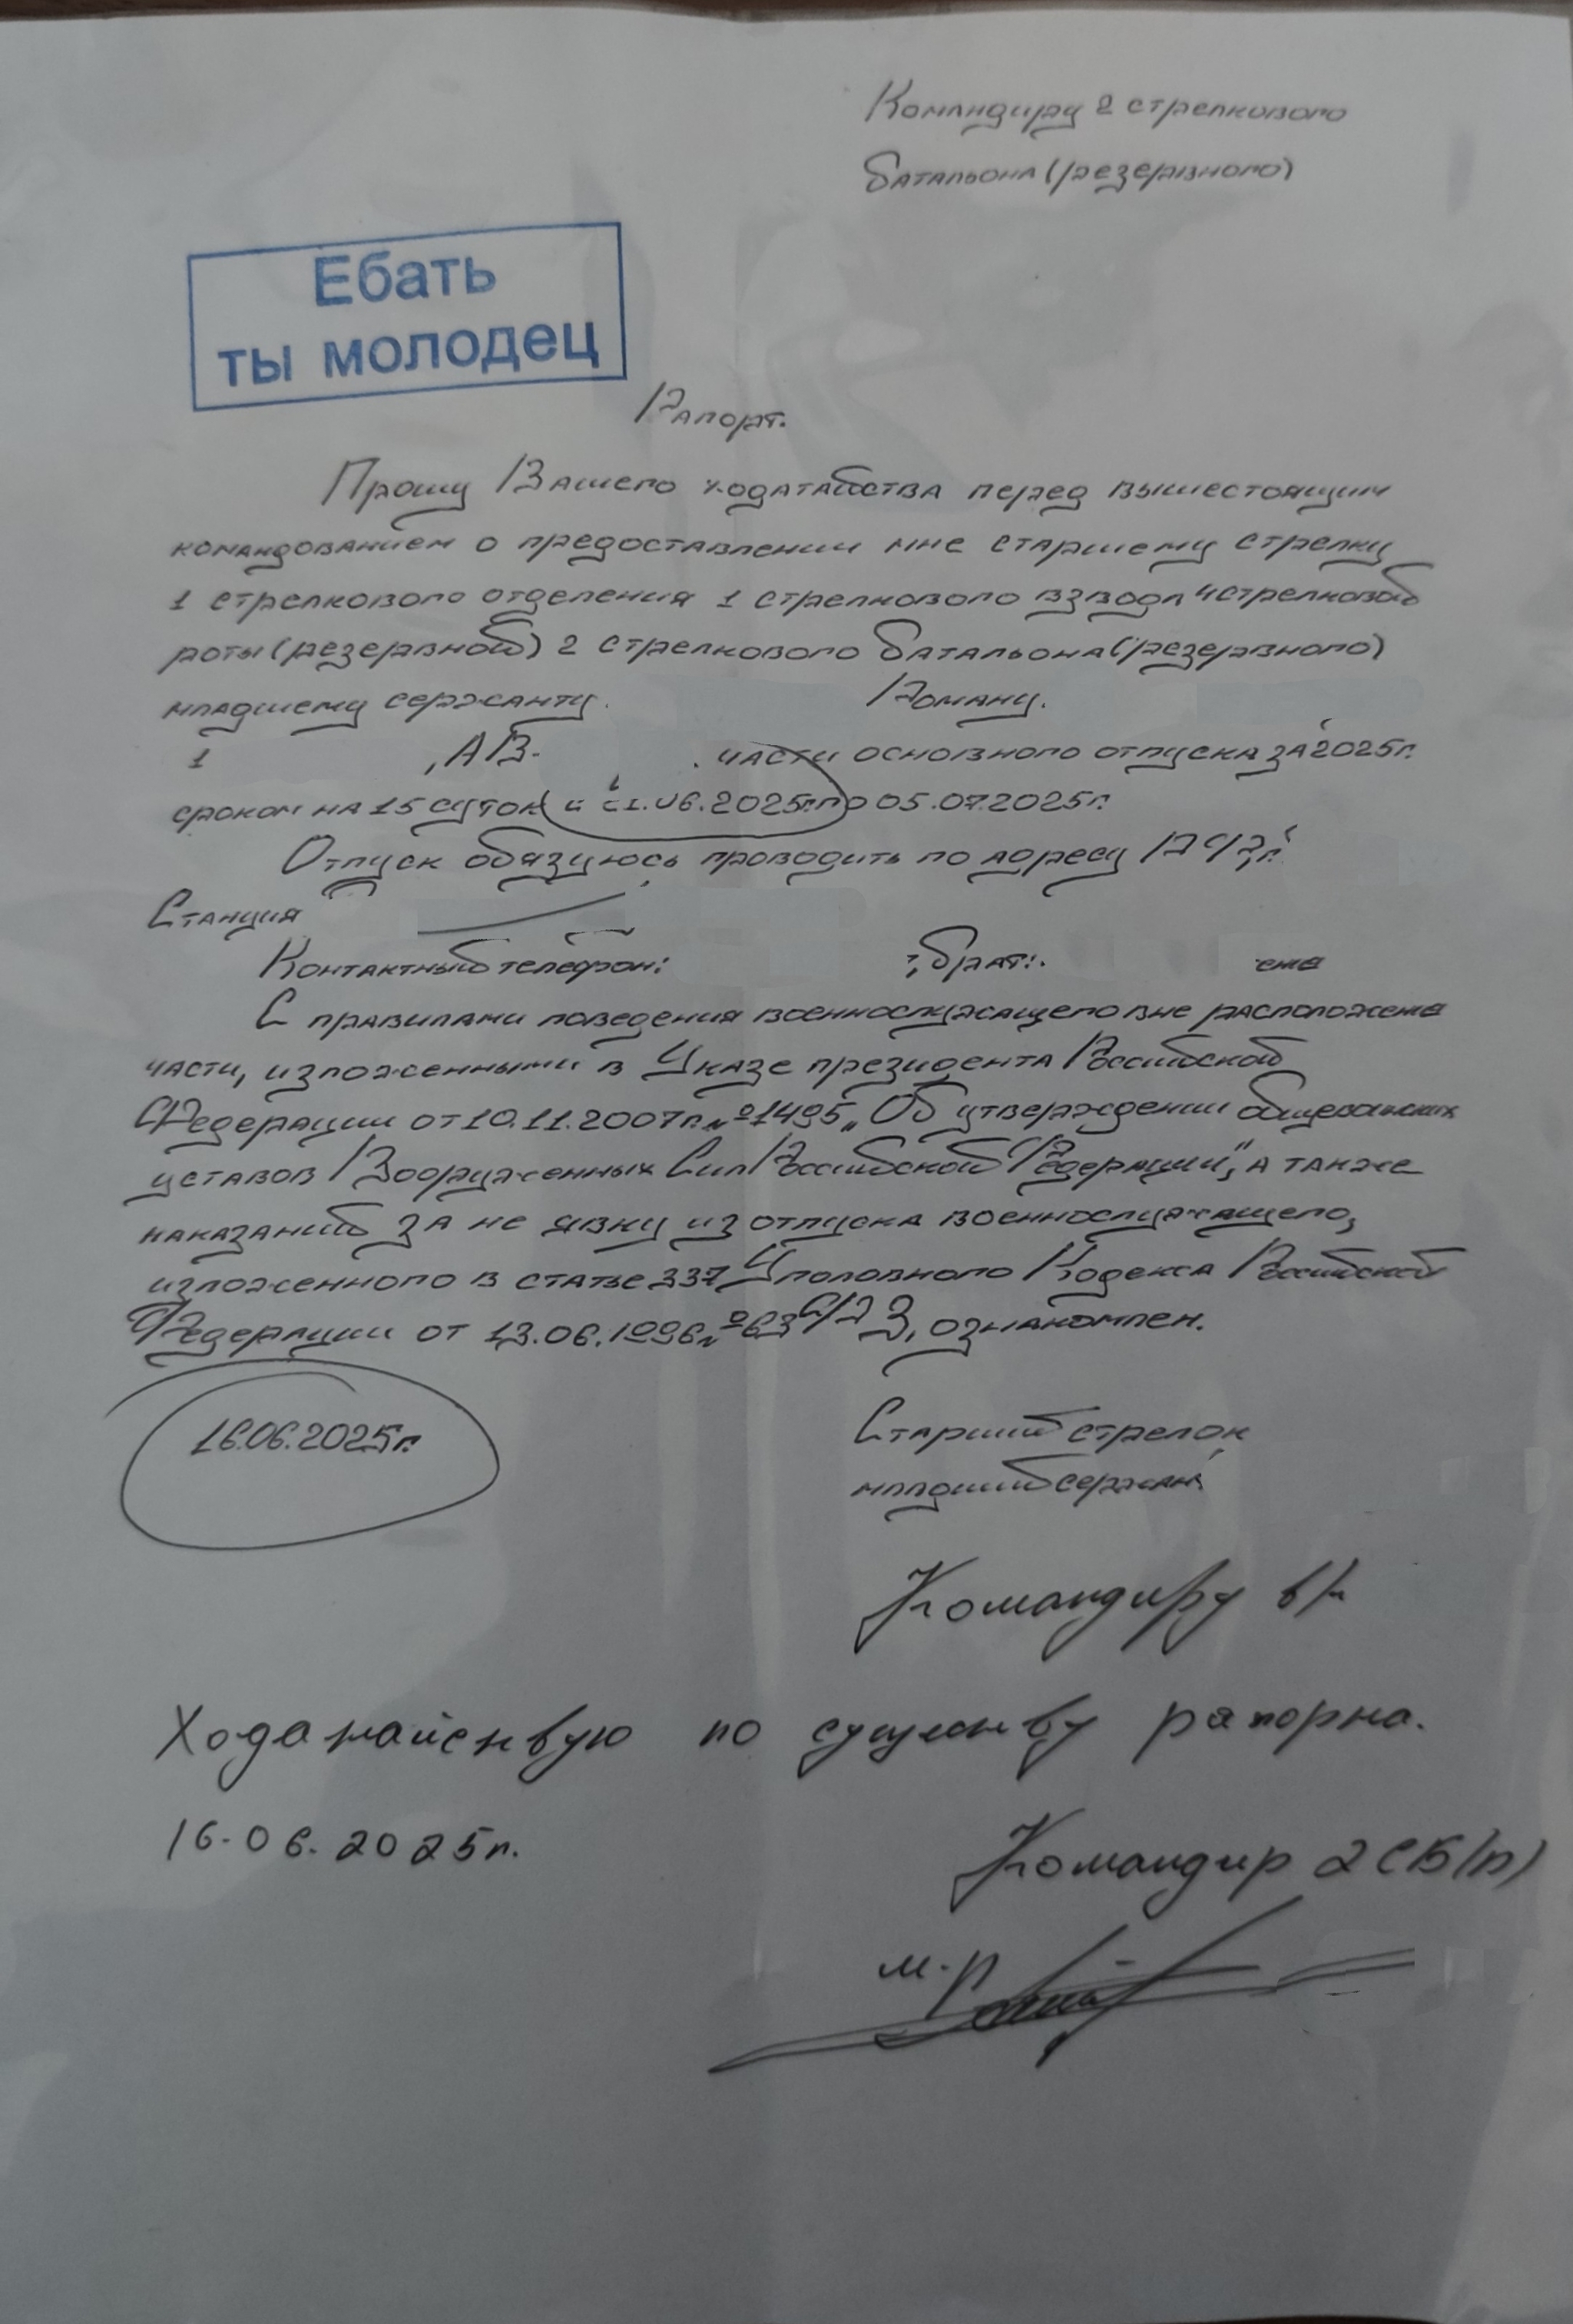 Командиру 2 стрелкового
батальона (резервного)
Ебать
ты молодец
Рапорт.
Прошу Вашего ходатайства перед вышестоящим
командованием о предоставлении мне старшему стрелку
1 стрелкового отделения 1 стрелкового взвода 4 стрелковой
роты (резервной) 2 стрелкового батальона (резервного)
младшему сержанту Роману.
1 , АВ- части основного отпуска за 2025г.
сроком на 15 суток 06.2025г. по 05.07.2025г.
Отпуск обязуюсь проводить по адресу
Станция
Контактный телефон: , брат:
С правилами поведения военнослужащего вне расположения
части, изложенными в Указе президента Российской
Федерации от 10.11.2007г. №1495 „Об утверждении общевоинских
уставов Вооруженных Сил Российской Федерации", а также
наказаний за не явку из отпуска военнослужащего,
изложенного в статье 337 Уголовного Кодекса Российской
Федерации от 13.06.1996г. №63 ФЗ, ознакомлен.
16.06.2025г.
Старший стрелок
младший сержант
Командиру в/ч
Ходатайствую по существу рапорта.
16.06.2025г.
Командир 2 СБ(р)
м-р